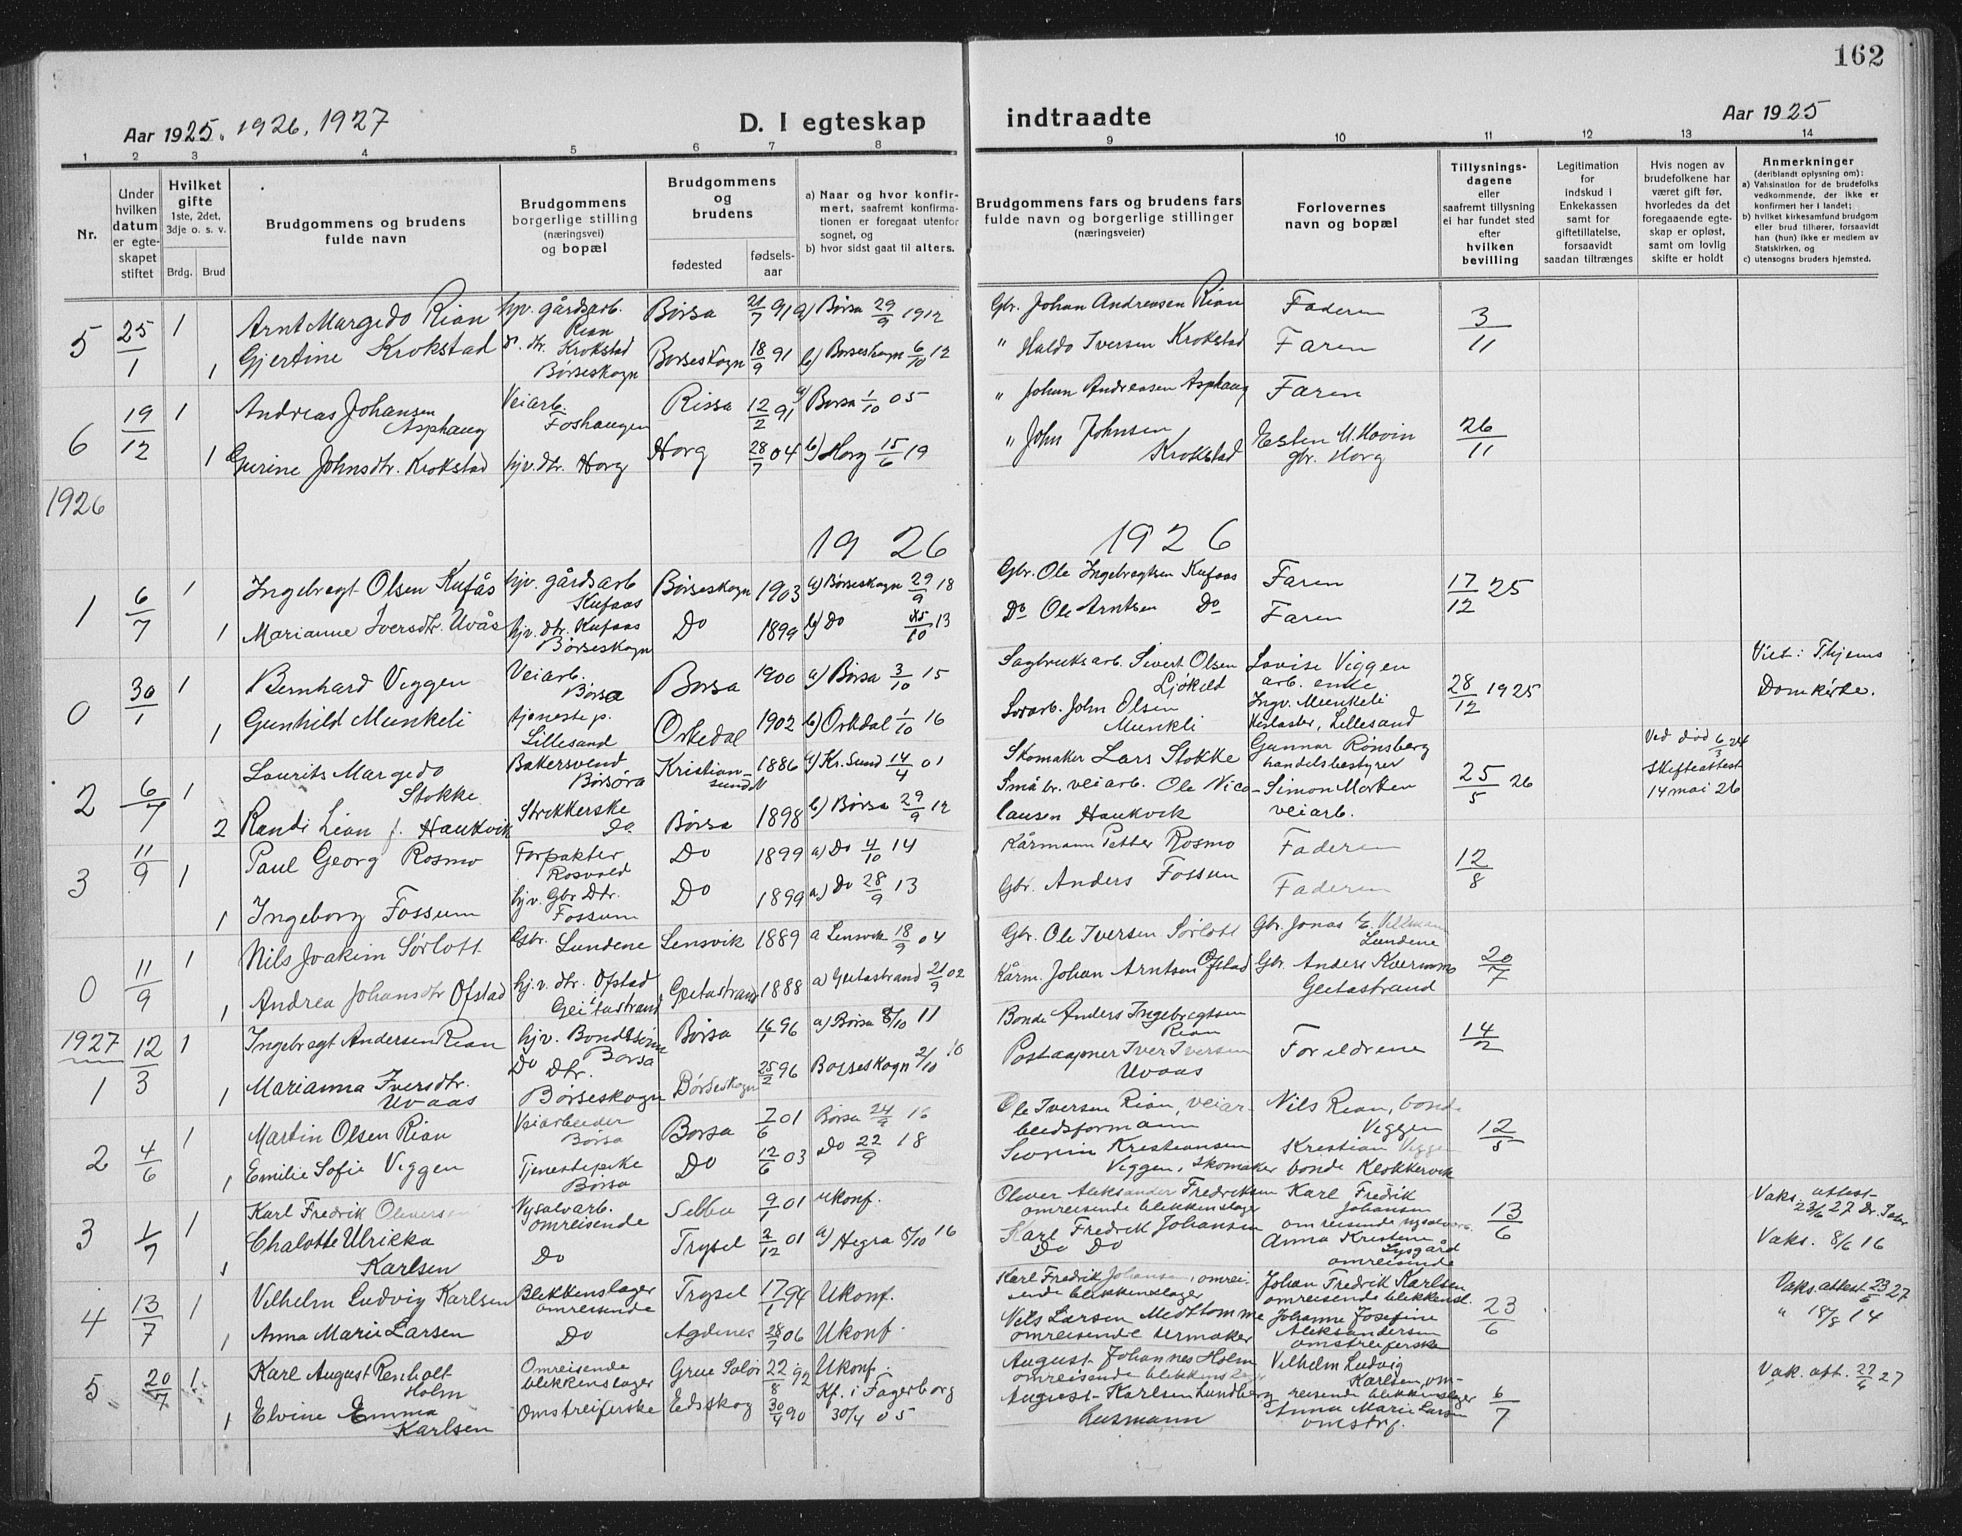 162
Aar 1925. 1926, 1927
D. I egteskap
indtraadte
Aar 1925
1 2 3 4 5 6 7 8 9 10 11 12 13 14
Nr.
Under hvilken datum er egteskapet stiftet
Hvilket gifte 1ste, 2det, 3dje o. s. v.
Brdg. Brud
Brudgommens og brudens fulde navn
Brudgommens borgerlige stilling (næringsvei) og bopæl
Brudgommens og brudens
fødested
fødsels-aar
a) Naar og hvor konfirmert, saafremt konfirmationen er foregaat utenfor sognet, og
b) hvor sidst gaat til alters.
Brudgommens fars og brudens fars fulde navn og borgerlige stillinger (næringsveier)
Forlovernes navn og bopæl
Tillysningsdagene eller saafremt tillysning ei har fundet sted efter hvilken bevilling
Legitimation for indskud i Enkekassen samt for giftetillatelse, forsaavidt saadan tiltrænges
Hvis nogen av brudefolkene har været gift før, hvorledes da det foregaaende egteskap er opløst, samt om lovlig skifte er holdt
Anmerkninger (deriblandt oplysning om):
a) Vahsination for de brudefolks vedkommende, der ikke er konfirmert her i landet;
b) hvilket kirkesamfund brudgom eller brud tilhører, forsaavidt han (hun) ikke er medlem av Statskirken, og
c) utensogns bruders hjemsted.
5 25/1 1 Arnt Margido Rian hjv. gårdsarb. Rian Børsa 21/7 91 a) Børsa 29/9 1912 Gbr. Johan Andreasen Rian Faderen 3/11
1 Gjertine Krokstad Krokstad Børseskogn Børseskogn 18/9 91 b) Børseskogn 6/10 12 " Haldo Iversen Krokstad Faren
6 19/12 1 Andreas Johansen Asphaug Veiarb. Foshaugen Rissa 12/2 91 a) Børsa 1/10 05 " Johan Andreasen Asphaug Faren 26/11
1 Gurine Johnsdtr. Krokstad hjv. dtr. Horg Horg 28/7 04 b) Horg 15/6 19 " John Johnsen Krokstad Esten M. Hovin gbr. Horg
1926
19 26 1926
1 6/7 1 Ingebregt Olsen Kufås hjv. gårdsarb Kufaas Børseskogn 1903 a) Børseskogn 29/9 18 Gbr. Ole Ingebregtsen Kufaas Faren 17/12 25
1 Marianne Iversdtr. Uvås hjv. dtr. Kufaas Børseskogn Do 1899 b) Do 13 Do Ole Arntsen Do Faren
0 30/1 1 Bernhard Viggen Veiarb. Børsa Børsa 1900 a) Børsa 3/10 15 Sagbruksarb. Sivert Olsen Lovise Viggen arb. enke 28/12 1925 Viet i Domkirke.
1 Gunhild Munkeli tjenestep. Lillesand Orkedal 1902 b) Orkdal 1/10 16 John Olsen Munkli Ingv. Munkeli Lillesand
2 6/7 1 Laurits Margido Stokke Bakersvend Børsøra Kristiansundst 1886 a) Kr. Sund 14/4 01 Skomaker Lars Stokke Gunnar Rønsberg handelsbestyrer 25/5 26 Ved død Skifteattest 14 mai 26
2 Randi Lian f. Haukvik Strikkerske Do Børsa 1898 b) Børsa 29/9 12 Småbr. veiarb. Ole Nicolausen Haukvik Simon Morken veiarb.
3 11/9 1 Paul Georg Rosmo Forpakter Rosvold Do 1899 a) Do 4/10 14 Kårmann Petter Rosmo Faderen 12/8
1 Ingeborg Fossum hjv. Gbr Dtr. Fossum Do 1899 a) Do 28/9 13 Gbr. Anders Fossum Faderen
0 11/9 1 Nils Joakim Sørlott Gbr. Lundene Lensvik 1889 a Lensvik 18/9 04 Gbr. Ole Iversen Sørlott Gbr. Jonas E. Lundene 20/7
1 Andrea Johansdtr Ofstad hj.v. dtr. Ofstad Geitastrand Geitastrand 1888 a) Geitastrand 21/9 02 Kårm. Johan Arntsen Ofstad Gbr. Anders Geitastrand
1927
1 12/3 1 Ingebregt Andersen Rian hjv. Bondesønn Børsa Børsa 96 a) Børsa 8/10 11 Bonde Anders Ingebregtsen Rian Foreldrene 14/2
1 Marianna Iversdtr. Uvaas Do Dtr. Børseskogn Børseskogn 25/2 96 Børseskogn 2/10 10 Postaapner Iver Iversen Uvaas
2 4/6 1 Martin Olsen Rian Veiarbeider Børsa Børsa 7/6 01 Børsa 24/9 16 Ole Iversen Rian, veiarbeidsformann Nils Rian, bonde Viggen 12/5
1 Emilie Sofie Viggen Tjenestepike Børsa Do 12/6 03 Do 22/9 18 Kristiansen Viggen, skomaker Kristian Viggen bonde Klokkervik
3 1/7 1 Karl Fredrik Oliversen Nysølvarb. omreisende Selbu 9/1 01 ukonf. Oliver Aleksander Fredriksen omreisende blikkenslager Karl Fredrik Johansen omreisende nysølvarb. 13/6 Vaks. attest 23/6 27
1 Chalotte Ulrikka Karlsen Do Trysel 2/12 01 a) Hegra 8/10 16 Karl Fredrik Johansen Do Do Anna Kristine Lysgård omreisende Vaks. 8/6 16
4 13/7 1 Vilhelm Ludvig Karlsen Blikkenslager omreisende Trysel 17/1 94 Ukonf. Karl Fredrik Johansen, omreisende blikkenslager Johan Fredrik Karlsen omreisende blikkensl. 23/6 Vaks. attest 23/6 27
1 Anna Marie Larsen Do Agdenes 28/7 06 Ukonf. Nils Larsen Medtomme omreisende urmaker Johanne Josefine Aleksandersen omstreiferske " 18/8 14
5 20/7 1 Karl August Renholt Holm Omreisende blikkenslager Grue Solør 22/8 92 Ukonf. August Johannes Holm omreisende blikkenslager Vilhelm Ludvig Karlsen, omreisende blikkenslager 6/7 Vak. att. 22/6 27
1 Elvine Emma Karlsen Omstreiferske Eidskog 30/4 90 Kf. i Fagerborg 30/4 05 August Karlsen Lundberg husmann Anna Marie Larsen omstrf.